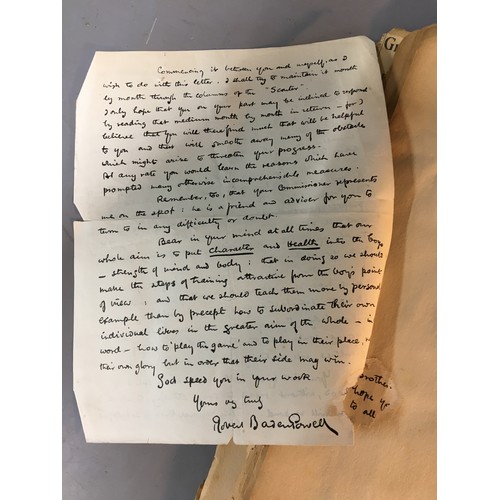 Commencing it between you and myself, as I
wish to do with this letter, I shall try to maintain it month
by month through the columns of the "Scouter".
I only hope that you on your part may be inclined to respond
by reading that medium month by month in return – for I
believe that you will therefrom find much that will be helpful
to you and that will smooth away many of the obstacles
which might arise to threaten your progress.
At any rate you would learn the reasons which have
prompted many otherwise incomprehensible measures.
Remember, too, that your Commissioner represents
me on the spot; he is a friend and adviser for you to
turn to in any difficulty or doubt.
Bear in your mind at all times that our
whole aim is to put Character and Health into the boys
– strength of mind and body; that in doing so we should
make the steps of training attractive from the boy's point
of view; and that we should teach them more by personal
example than by precept how to subordinate their own
individual lives in the greater aim of the whole – in
word – how to 'play the game' and to play in their place,
their own glory but in order that their side may win.
God speed you in your work
Yours truly
Robert Baden Powell
G
brother
hope yo
to all